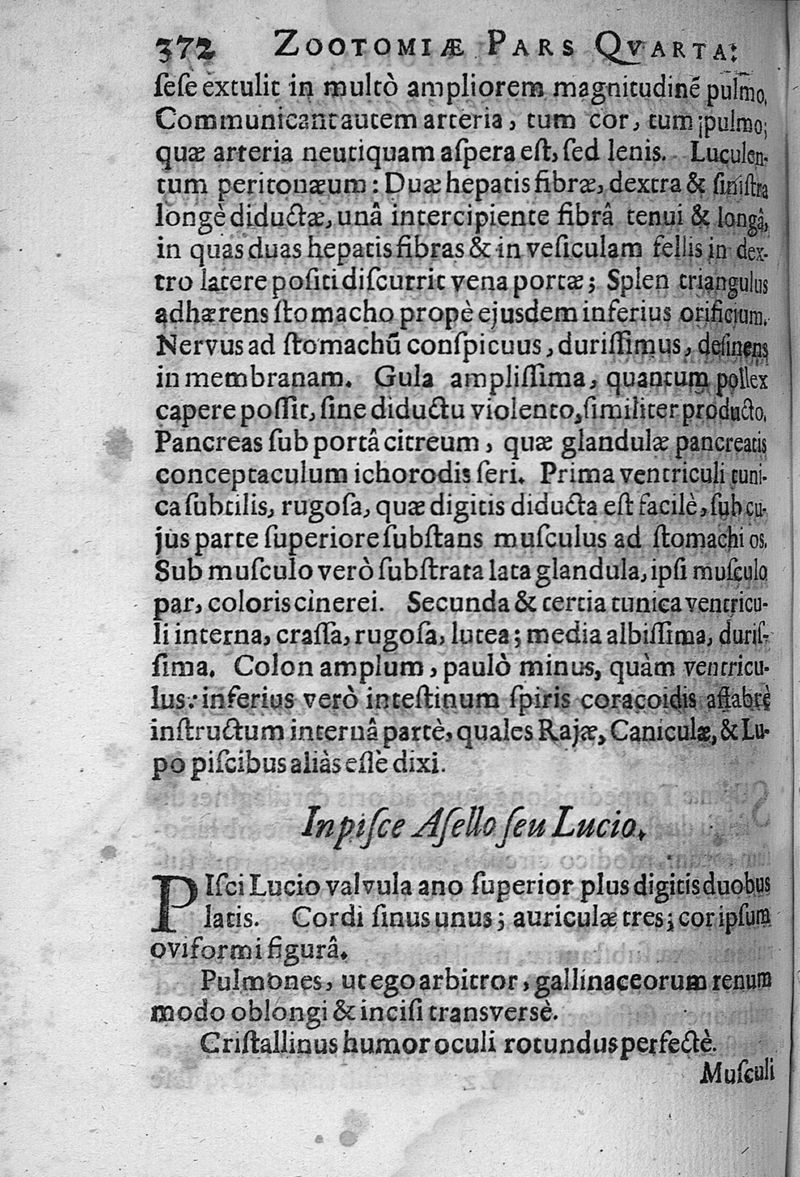 372 ZOOTOMIÆ PARS QVARTA:
ſeſe extulit in multò ampliorem magnitudinē pulmo,
Communicant autem arteria, tum cor, tum pulmo;
quæ arteria neutiquam aſpera eſt, ſed lenis. Luculen-
tum peritonæum: Duæ hepatis fibræ, dextra & ſiniſtra
longè diductæ, unâ intercipiente fibrâ tenui & longâ,
in quas duas hepatis fibras & in veſiculam fellis in dex-
tro latere poſiti diſcurrit vena portæ; Splen triangulus
adhærens ſtomacho propè ejusdem inferius orificium.
Nervus ad ſtomachū conſpicuus, duriſſimus, deſinens
in membranam. Gula ampliſſima, quantum pollex
capere poſſit, ſine diductu violento, ſimiliter producto,
Pancreas ſub portâ citreum, quæ glandulæ pancreatis
conceptaculum ichorodis ſeri. Prima ventriculi tuni-
ca ſubtilis, rugoſa, quæ digitis diducta eſt facilè, ſub cu-
jus parte ſuperiore ſubſtans muſculus ad ſtomachi os.
Sub muſculo verò ſubſtrata lata glandula, ipſi muſculo
par, coloris cinerei. Secunda & tertia tunica ventricu-
li interna, craſſa, rugoſa, lutea; media albiſſima, duriſ-
ſima. Colon amplum, paulò minus, quàm ventricu-
lus: inferius verò inteſtinum ſpiris coracoidis affabrè
inſtructum internâ partè, quales Rajæ, Caniculæ, & Lu-
po piſcibus aliàs eſſe dixi.
In piſce Aſello ſeu Lucio.
PIſci Lucio valvula ano ſuperior plus digitis duobus
latis. Cordi ſinus unus; auriculæ tres; cor ipſum
oviformi figurâ.
Pulmones, ut ego arbitror, gallinaceorum renum
modo oblongi & inciſi transversè.
Criſtallinus humor oculi rotundus perfectè.
Muſculi